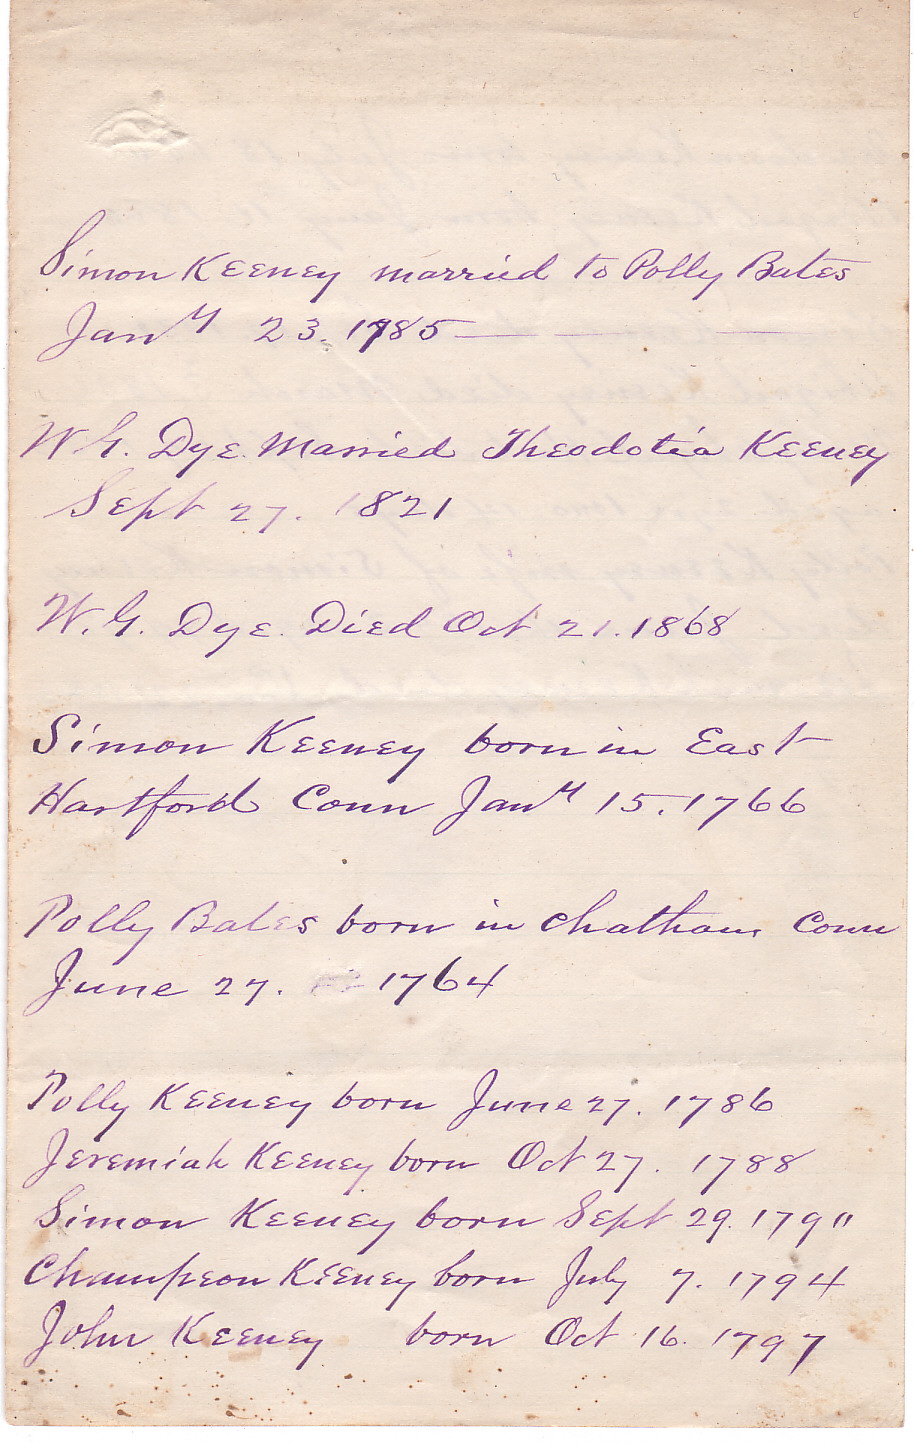 Simon Keeney married to Polly Bates
Jany 23. 1785
W G. Dye. Married Theodotia Keeney
Sept 27. 1821
W. G. Dye. Died Oct 21. 1868
Simon Keeney born in East
Hartford Conn Jany 15. 1766
Polly Bates born in Chatham Conn
June 27. 1764
Polly Keeney born June 27. 1786
Jeremiah Keeney born Oct 27. 1788
Simon Keeney born Sept 29.
Champeon Keeney born July 7. 1794
John Keeney born Oct 16. 1797